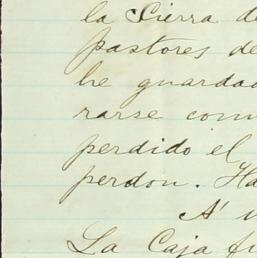 la Sierra de
pastores de
he guardad
rarse com
perdido el
perdon. Ha
A'
La Caja fu